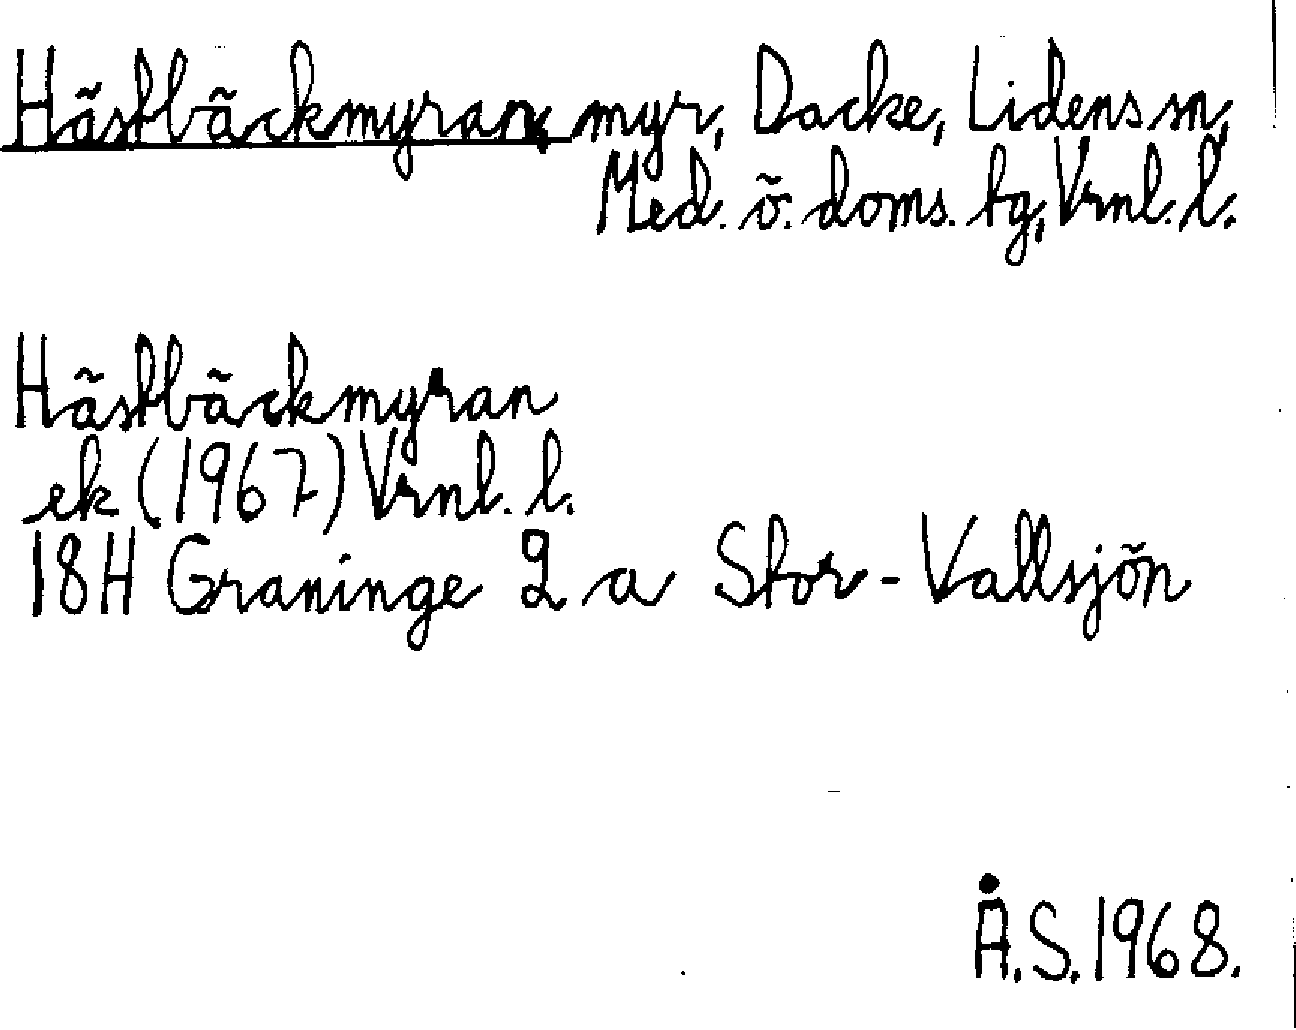 Hästbäckmyran, myr, Dacke, Lidens sn,
Med. ö. doms. tg, Vrnl. l.
Hästbäckmyran
ek (1967) Vrnl. l.
18H Graninge 2 a Stor-Vallsjön
Å.S. 1968.